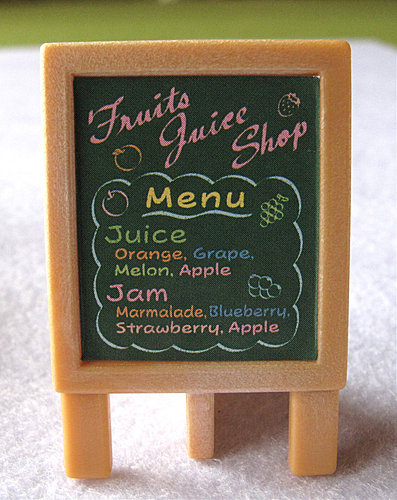 Fruits
Juice
Shop
Menu
Juice
Orange, Grape,
Melon, Apple
Jam
Marmalade, Blueberry,
Strawberry, Apple